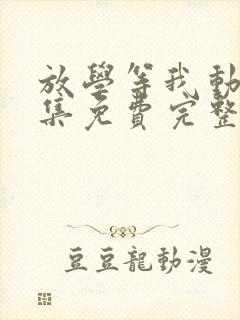 放學等我動
集免費完整
豆豆龍動漫